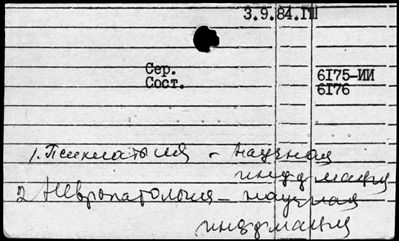 3.9.84.ГП
Сер.
Сост.
6I75-ИИ
6I76
1. Психиатрия - научная
информация
2 Невропатология - научная
информация